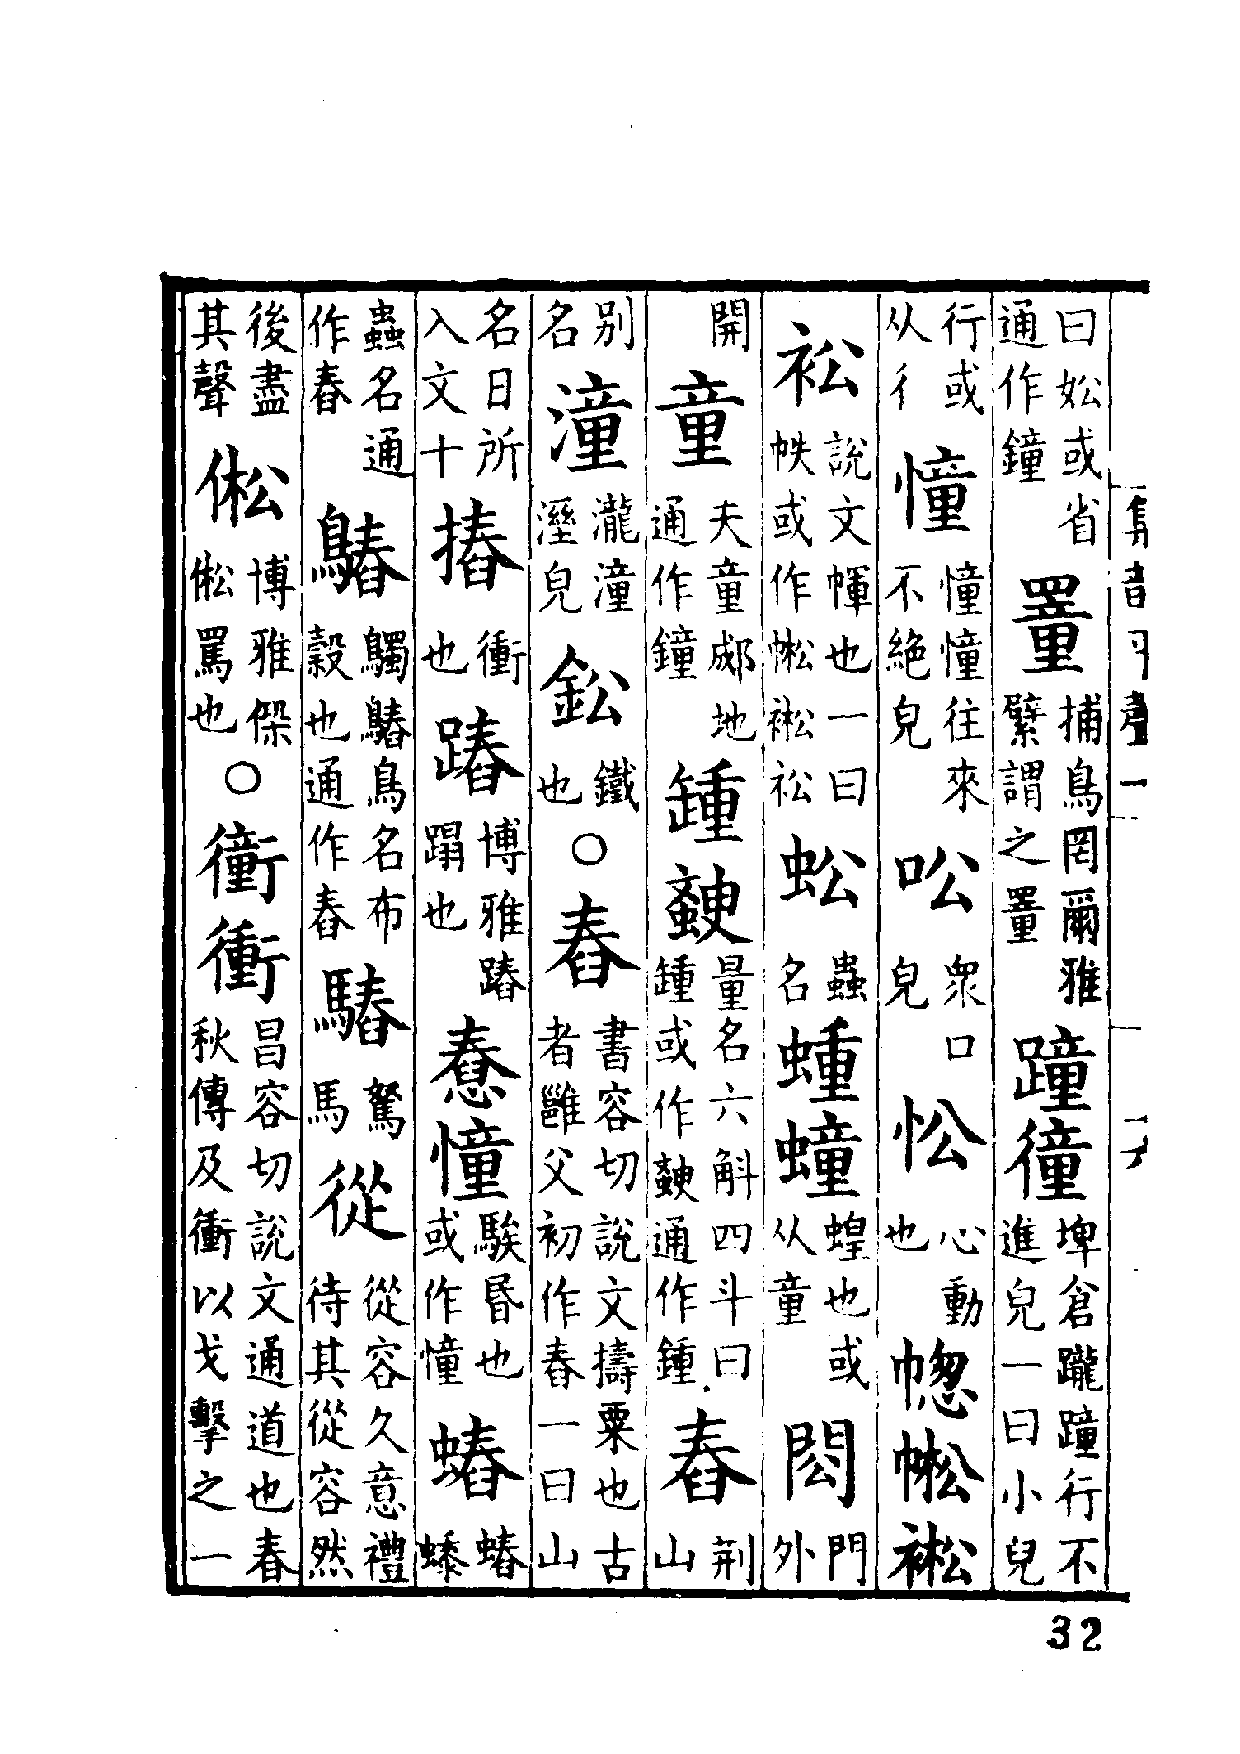 曰妐或省通作鐘 罿 捕鳥罔爾雅繴謂之罿 蹱𢖜 埤倉躘蹱行不進皃一曰小兒
行或从彳 憧 憧憧往來不絶皃 㕬 衆口皃 忪 心動也 幒㡆𧛆
衳 說文幝也一曰帙或作㡆𧛆衳 蚣 蟲名 蝩𧑆 蝗也或从童 閧 門外
開 童 夫童郕地通作鐘 鍾 量名六斛四斗曰鍾或作通作鍾 舂 荆山
别名 潼 瀧潼溼皃 鈆 鐵也 ○ 舂 書容切說文擣粟也古者雝父初作舂一曰山
名日所入文十 摏 衝也 蹖 博雅蹖蹋也 惷憧 騃昏也或作憧 蝽 蝽
蟲名通作舂 鶞 鸀鶞鳥名布穀也通作舂 䮞 駑馬 從 從容久意禮待其從容然
後盡其聲 倯 博雅傑倯罵也 ○ 衝 昌容切說文通道也春秋傳及衝以戈擊之一
32